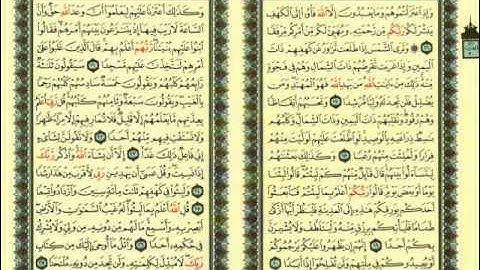 وَإِذِ اعْتَزَلْتُمُوهُمْ وَمَا يَعْبُدُونَ إِلَّا اللَّهَ فَأْوُوا إِلَى الْكَهْفِ
يَنْشُرْ لَكُمْ رَبُّكُمْ مِنْ رَحْمَتِهِ وَيُهَيِّئْ لَكُمْ مِنْ أَمْرِكُمْ مِرْفَقًا
۞ وَتَرَى الشَّمْسَ إِذَا طَلَعَتْ تَزَاوَرُ عَنْ كَهْفِهِمْ ذَاتَ
الْيَمِينِ وَإِذَا غَرَبَتْ تَقْرِضُهُمْ ذَاتَ الشِّمَالِ وَهُمْ فِي فَجْوَةٍ
مِنْهُ ذَلِكَ مِنْ آيَاتِ اللَّهِ مَنْ يَهْدِ اللَّهُ فَهُوَ الْمُهْتَدِ وَمَنْ
يُضْلِلْ فَلَنْ تَجِدَ لَهُ وَلِيًّا مُرْشِدًا ١٧ وَتَحْسَبُهُمْ أَيْقَاظًا
وَهُمْ رُقُودٌ وَنُقَلِّبُهُمْ ذَاتَ الْيَمِينِ وَذَاتَ الشِّمَالِ وَكَلْبُهُمْ
بَاسِطٌ ذِرَاعَيْهِ بِالْوَصِيدِ لَوِ اطَّلَعْتَ عَلَيْهِمْ لَوَلَّيْتَ مِنْهُمْ
فِرَارًا وَلَمُلِئْتَ مِنْهُمْ رُعْبًا ١٨ وَكَذَلِكَ بَعَثْنَاهُمْ لِيَتَسَاءَلُوا
بَيْنَهُمْ قَالَ قَائِلٌ مِنْهُمْ كَمْ لَبِثْتُمْ قَالُوا لَبِثْنَا يَوْمًا أَوْ
بَعْضَ يَوْمٍ قَالُوا رَبُّكُمْ أَعْلَمُ بِمَا لَبِثْتُمْ فَابْعَثُوا
أَحَدَكُمْ بِوَرِقِكُمْ هَذِهِ إِلَى الْمَدِينَةِ فَلْيَنْظُرْ أَيُّهَا أَزْكَى
طَعَامًا فَلْيَأْتِكُمْ بِرِزْقٍ مِنْهُ وَلْيَتَلَطَّفْ وَلَا يُشْعِرَنَّ
بِكُمْ أَحَدًا ١٩ إِنَّهُمْ إِنْ يَظْهَرُوا عَلَيْكُمْ يَرْجُمُوكُمْ
وَكَذَلِكَ أَعْثَرْنَا عَلَيْهِمْ لِيَعْلَمُوا أَنَّ وَعْدَ اللَّهِ حَقٌّ وَأَنَّ
السَّاعَةَ لَا رَيْبَ فِيهَا إِذْ يَتَنَازَعُونَ بَيْنَهُمْ أَمْرَهُمْ فَقَالُوا
ابْنُوا عَلَيْهِمْ بُنْيَانًا رَبُّهُمْ أَعْلَمُ بِهِمْ قَالَ الَّذِينَ غَلَبُوا عَلَى
أَمْرِهِمْ لَنَتَّخِذَنَّ عَلَيْهِمْ مَسْجِدًا ٢١ سَيَقُولُونَ ثَلَاثَةٌ
رَابِعُهُمْ كَلْبُهُمْ وَيَقُولُونَ خَمْسَةٌ سَادِسُهُمْ كَلْبُهُمْ رَجْمًا
بِالْغَيْبِ وَيَقُولُونَ سَبْعَةٌ وَثَامِنُهُمْ كَلْبُهُمْ قُلْ رَبِّي أَعْلَمُ
بِعِدَّتِهِمْ مَا يَعْلَمُهُمْ إِلَّا قَلِيلٌ فَلَا تُمَارِ فِيهِمْ إِلَّا مِرَاءً ظَاهِرًا
وَلَا تَسْتَفْتِ فِيهِمْ مِنْهُمْ أَحَدًا ٢٢ وَلَا تَقُولَنَّ لِشَيْءٍ
إِنِّي فَاعِلٌ ذَلِكَ غَدًا ٢٣ إِلَّا أَنْ يَشَاءَ اللَّهُ وَاذْكُرْ رَبَّكَ
إِذَا نَسِيتَ وَقُلْ عَسَى أَنْ يَهْدِيَنِ رَبِّي لِأَقْرَبَ مِنْ هَذَا رَشَدًا
٢٤ وَلَبِثُوا فِي كَهْفِهِمْ ثَلَاثَ مِائَةٍ سِنِينَ وَازْدَادُوا تِسْعًا
٢٥ قُلِ اللَّهُ أَعْلَمُ بِمَا لَبِثُوا لَهُ غَيْبُ السَّمَاوَاتِ وَالْأَرْضِ
أَبْصِرْ بِهِ وَأَسْمِعْ مَا لَهُمْ مِنْ دُونِهِ مِنْ وَلِيٍّ وَلَا يُشْرِكُ
فِي حُكْمِهِ أَحَدًا ٢٦ وَاتْلُ مَا أُوحِيَ إِلَيْكَ مِنْ كِتَابِ
رَبِّكَ لَا مُبَدِّلَ لِكَلِمَاتِهِ وَلَنْ تَجِدَ مِنْ دُونِهِ مُلْتَحَدًا